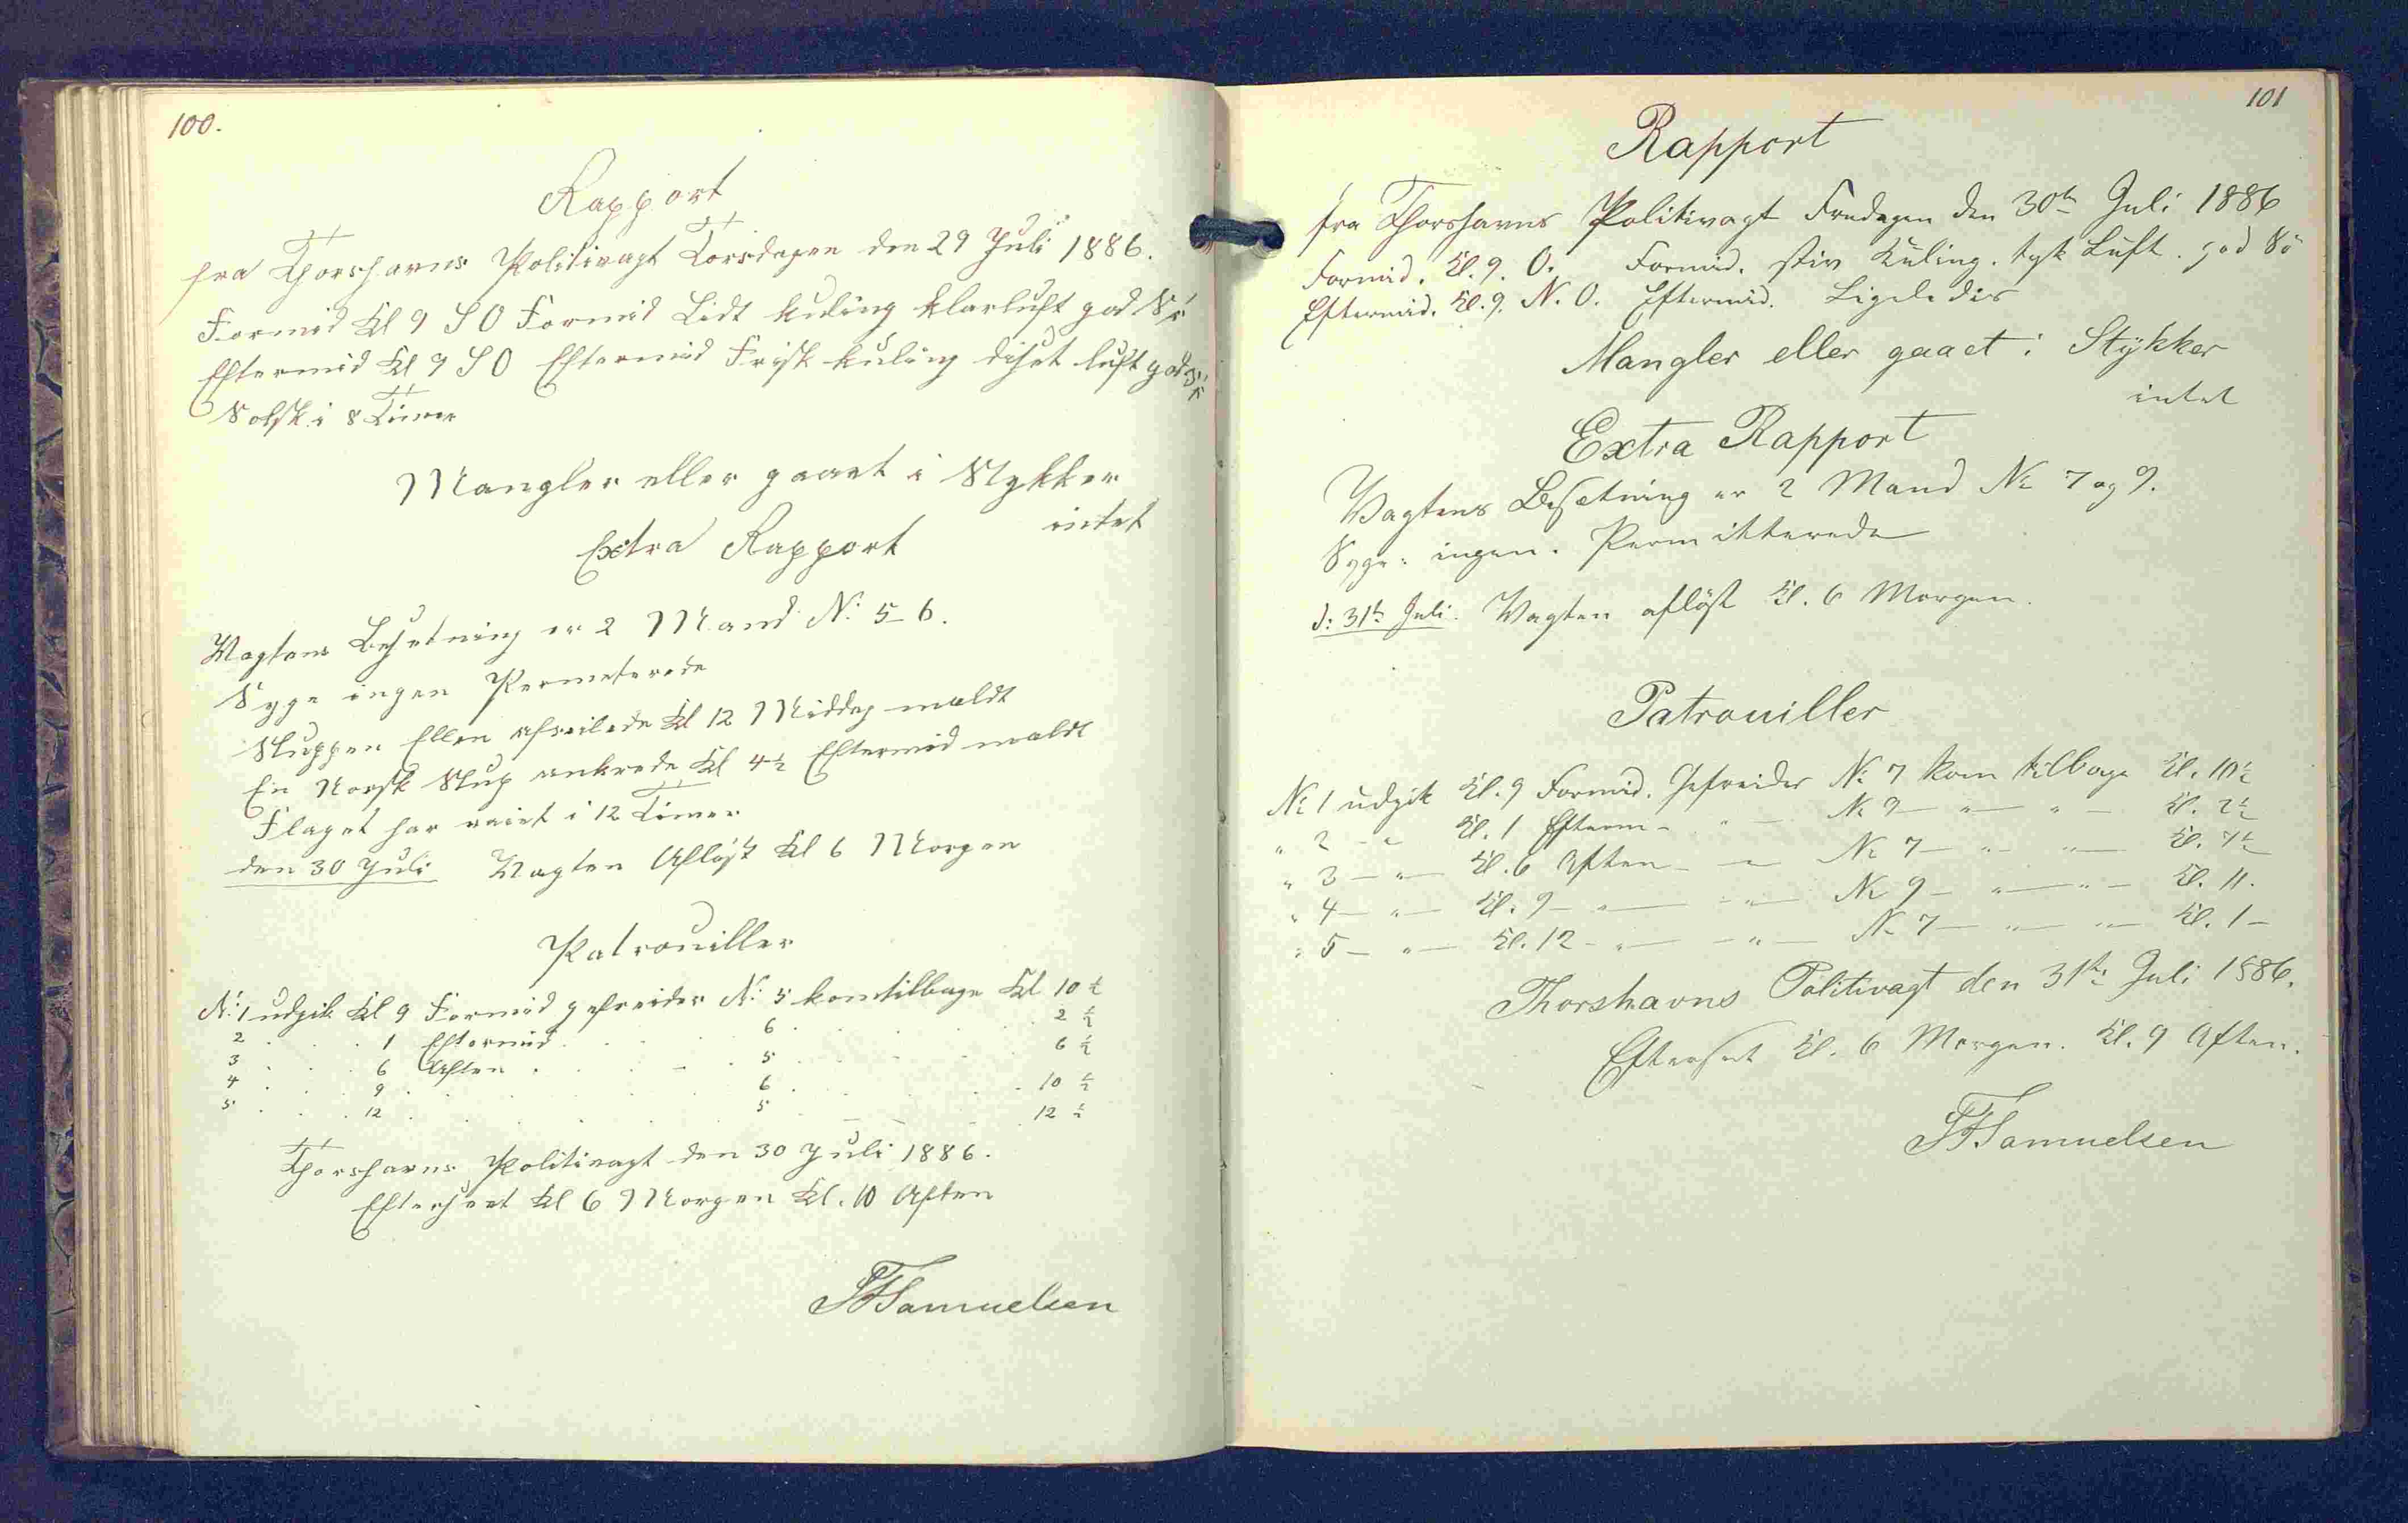 100.
Rapport
fra Thorshavns Politivagt Torsdagen den 29 Juli 1886.
Formid Kl 9 S O Formid Lidt kuling klarluft god Sö
Eftermid Kl 9 S O Eftermid Frisk kuling diset luft god Sö
Solsk. i 8 Timer
Mangler eller gaaet i Stykker
intet
Extra Rapport
Vagtens Besetning er 2 Mand N: 5-6.
Syge ingen Permeterede
Sluppen Ellen afseilede Kl 12 Middag meldt
En Norsk Slup ankrede Kl 4½ Eftermid meldt
Flaget har vaiet i 12 Timer
den 30 Juli Vagten Aflöst Kl 6 Morgen
Patrouiller
N: 1 udgik Kl 9 Formid gefreider N: 5 kom tilbage Kl 10 ½
2 . . . 1 Eftermid . . . 6 . . . 2 ½
3 . . . 6 Aften . . . 5 . . . 6 ½
4 . . . 9 . . . 6 . . . 10 ½
5 . . . 12 . . . 5 . . . 12 ½
Thorshavns Politivagt den 30 Juli 1886.
Efterseet Kl 6 Morgen Kl. 10 Aften
Samuelsen
101
Rapport
fra Thorshavns Politivagt Fredagen den 30te Juli 1886
Formid. Kl. 9. O. Formid. stiv Kuling. tyk Luft. god Sö
Eftermid. Kl. 9. N. O. Eftermid. Ligeledes
Mangler eller gaaet i Stykker
intet
Extra Rapport
Vagtens Besætning er 2 Mand No 7 og 9.
Syge: ingen. Permitterede —
d: 31te Juli. Vagten aflöst Kl. 6 Morgen.
Patrouiller
No 1 udgik Kl. 9 Formid. Gefreider No 7 kom tilbage Kl. 10½
" 2 - " Kl. 1 Efterm - " - No 9 — " — " — Kl. 2½
" 3 — " — Kl. 6 Aften - " — No 7 — " — " — Kl. 7½
" 4 — " — Kl. 9 — " — " — No 9 — " — " — Kl. 11.
" 5 — " — Kl. 12 - " — " — No 7 — " — " — Kl. 1 —
Thorshavns Politivagt den 31te Juli 1886.
Efterseet Kl. 6 Morgen. Kl. 9 Aften.
Samuelsen